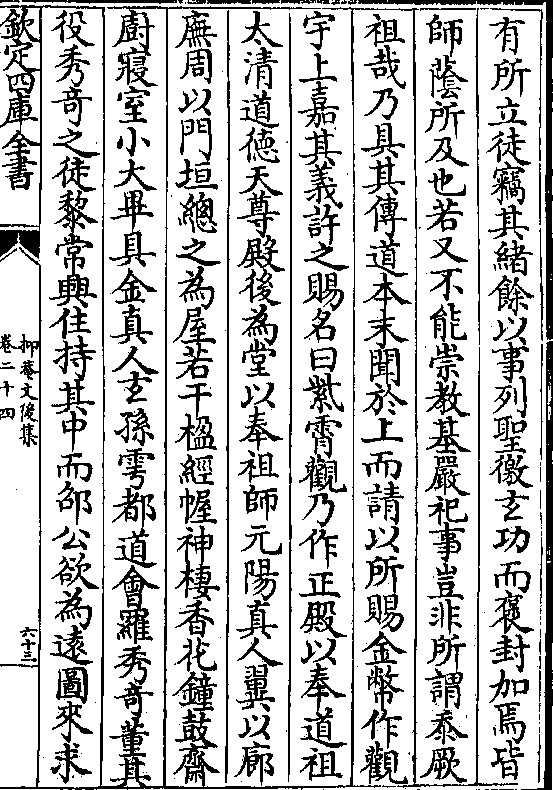 有所立徒竊其緒餘以事列聖徼玄功而褒封加焉皆
師蔭所及也若又不能崇教基嚴祀事豈非所謂忝厥
祖哉乃具其傳道本末聞於上而請以所賜金幣作觀
宇上嘉其義許之賜名曰紫霄觀乃作正殿以奉道祖
太清道德天尊殿後為堂以奉祖師元陽真人翼以廊
廡周以門垣總之為屋若干楹經幄神棲香花鐘鼓齋
廚寢室小大畢具金真人玄孫雩都道會羅秀竒董其
役秀竒之徒黎常興住持其中而邵公欲為遠圖來求
欽定四庫全書
抑菴文後集
卷二十四
六十三